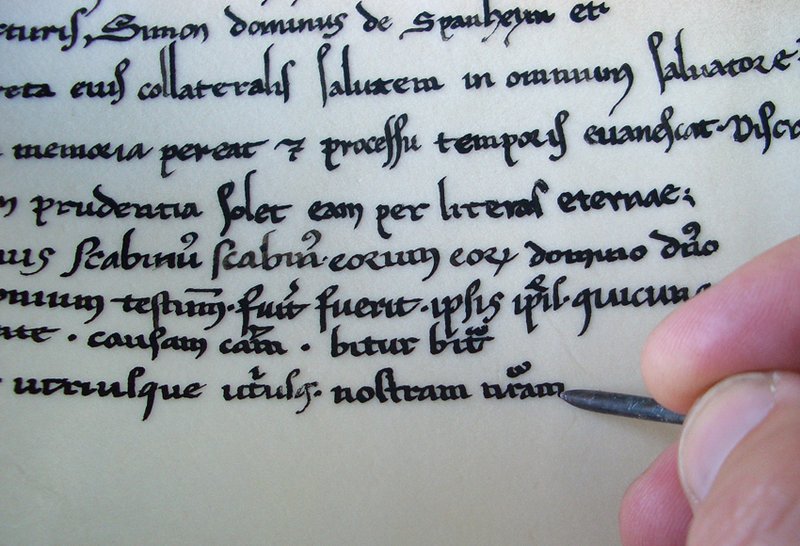 cturis, Simon dominus de Spanheym et
reta eius collateralis salutem in omnium salvatore
memoria pereat ⁊ processu temporis evanescat. Discr
prudentia solet eam per literas eternae;
uis scabinꝰ scabin᷒. eorum eoꝝ domino dn̄o
omnium testim̄. fuit fuerit. ipsis ip̄is. quicunq
ate. causam cām. bitur bit᷑
utriusque ut̓usq. nostram nr̄am